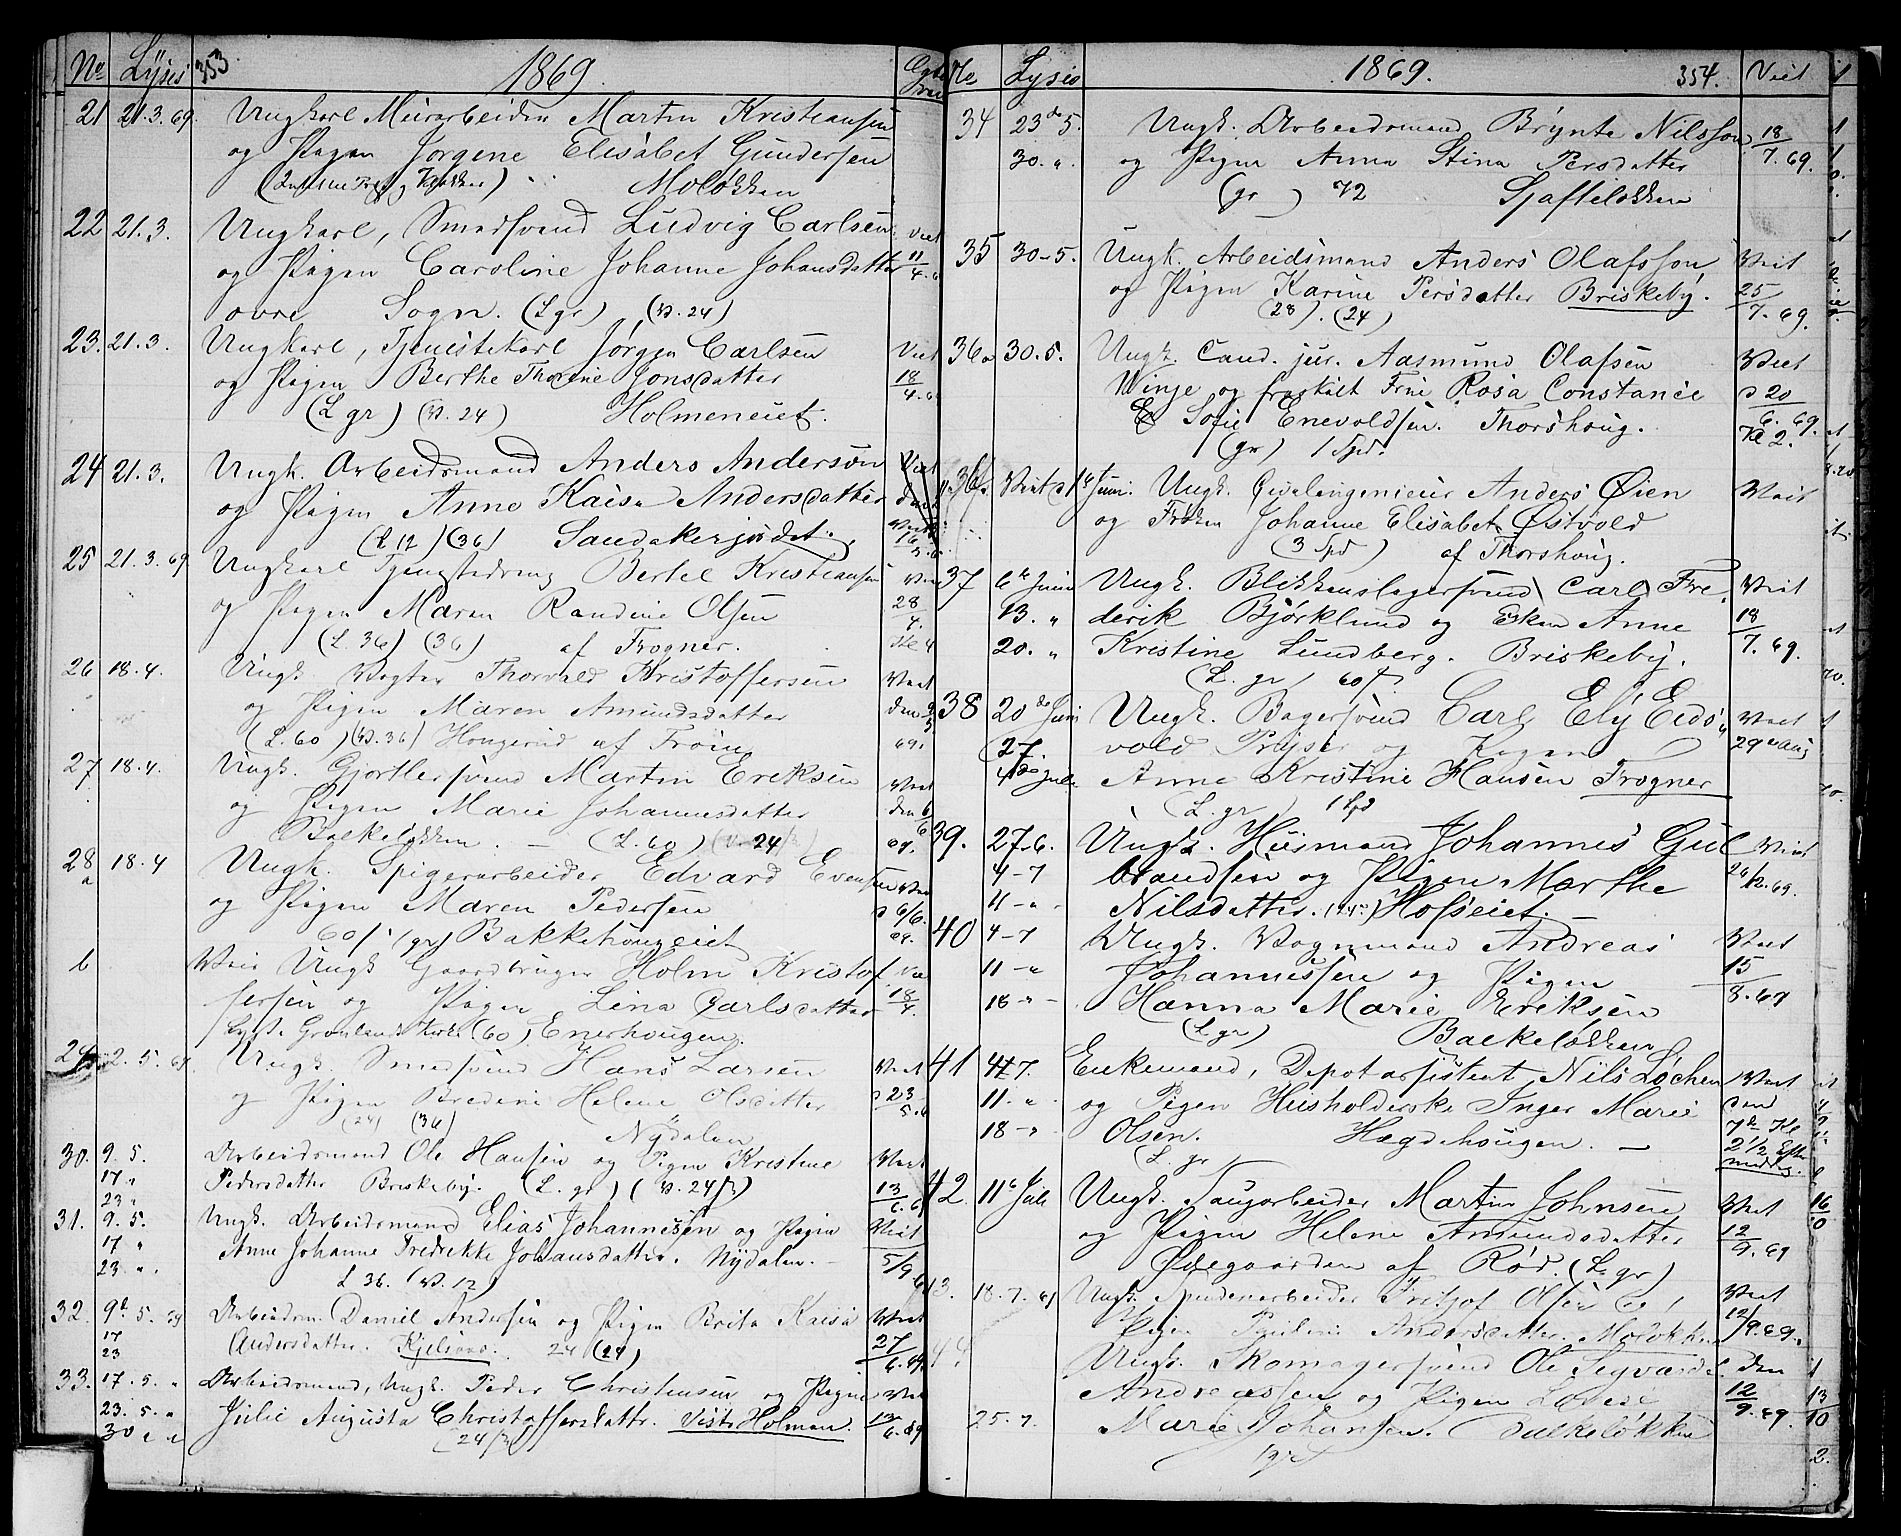 No Lyses 353 1869.
21 21.3.69. Ungkarl Murarbeider Martin Kristiansen
og Pigen Jørgene Elisabet Gundersen
Moløkken
22 21.3. Ungkarl, Smedsvend Ludvig Carlsen Viet
og Pigen Caroline Johanne Johansdatter 11/4
øvre Sogn. (L gr) (V. 24)
23. 21.3. Ungkarl, Tjenestekarl Jørgen Carlsen Viet
og Pigen Berthe Thorine Jonsdatter 18/4
(L gr) (V. 24) Holmeneiet.
24 21.3. Ungk. Arbeidsmand Anders Anderson
og Pigen Anne Kaisa Andersdatter
(L 12) (36) Sandakerjordet.
25 21.3.69 Ungkarl Tjenestedreng Bertel Kristiansen
og Pigen Maren Randine Olsen 28/4.
(L. 36) (36) af Frogner. Kl 4
26 18.4. Ungk. Vogter Thorvald Kristoffersen Viet
og Pigen Maren Amundsdatter den
(L. 60) (V. 36) Hougerud af Frøin 69.
27 18.4. Ungk. Gjørtlersvend Martin Eriksen Viet
og Pigen Marie Johannesdatter den 6/6
Balkeløkken. (L. 60) (V. 24) 69.
28 a 18.4 Ungk. Spigerarbeider Edvard Evensen
og Pigen Maren Pedersen 6/6.
60 (gr) Bakkehougeiet 69.
b Viet Ungk Gaardbruger Holm Kristof
fersen og Pigen Lina Carlsdatter 18/4.
Lyst i Grønlands Kirke (60) Enerhougen.
29 2.5.69 Ungk. Smedsvend Hans Larsen Viet
og Pigen Bredine Helene Olsdatter 23/5.
(24) (36) Nydalen
30. 9.5. Arbeidsmand Ole Hansen og Pigen Kristine Viet
17 " Pedersdatter Briskeby. (L. gr) (V. 24) 13/6.
23 "
31. 9.5. Ungk. Arbeidsmand Elias Johannesen og Pigen Viet
17 " Anne Johanne Fredrikke Johansdatter. Nydalen. 5/9
23. " L 36. (V. 12)
32. 9.5.69 Arbeidsm. Daniel Andersen og Pigen Brita Kaisa Viet
17 Andersdatter. 24 (24) 27/6.69
23
33. 17.5. " Arbeidsmand, Ungk. Peder Christensen og Pigen Viet
23.5. " Julie Augusta Christoffersdatter. Vestre Holmen. 13/6.69
30 (24)
No Lysis 1869. 354. Viet
34 23de 5. Ungk. Arbeidsmand Brynte Nilsson 18/7.69.
30. " og Pigen Anna Stina Persdatter
(gr) 72 Sjafteløkken
35 30-5. Ungk. Arbeidsmand Anders Olafsson, Viet
og Pigen Karine Persdatter Briskeby. 25/7.69.
(28). (24)
36a 30.5. Ungk. Cand. jur. Aasmund Olafsen Viet
Winje og fraskilt Frue Rosa Constance 20/6.69.
Sofie Enevoldsen. Thorshoug. Kl 2.
(gr) 1 Spd.
36b Viet 1 Juni. Ungk. Civilingeniør Anders Øien Viet
og Frøken Johanne Elisabet Østvold
(3 Spd) af Thorshoug.
37 6te Juni Ungk. Blikkenslagersvend Carl Fre Viet
13. " derik Bjørklund og Enken Anne 18/7.69.
20. " Kristine Lundberg. Briskeby.
(L. gr) 60
38 20de Juni Ungk. Bagersvend Carl Ely Eids Viet
27. vold Prijser og Pigen 29 Aug
4de Juli Anne Kristine Hansen Frogner
(L. gr) 1 Spd
39. 27-6. Ungk. Husmand Johannes Gul Viet
4-7 brandsen og Pigen Marthe 26/12.69.
11-" Nilsdatter. (24) Hofseiet.
40 4-7 Ungk. Vognmand Andreas Viet
11-" Johannessen og Pigen 15/8.69
18-" Hanna Marie Eriksen
(L. gr) Balkeløkken
41 4-7. Enkemand, Depotassistent Nils Løchen Viet
11." og Pigen Husholderske Inger Marie den
18-" Olsen. Hægdehougen. 7de Kl
L. gr 2 1/2 Efter
middag.
42 11 Juli Ungk. Saugarbeider Martin Johnsen Viet
og Pigen Helene Amundsdatter 12/9.69
Ødegaarden af Rød. (L. gr)
43. 18.7.69 Ungk. Spindearbeider Fritjof Olsen og Viet
Pigen Andersdatter. Moløkken 12/9.69.
44. Ungk. Skomagersvend Ole Segvard den
Andreassen og Pigen Lovise 12/9.69.
25.7. Marie Johansen. Balkeløkken
(gr)